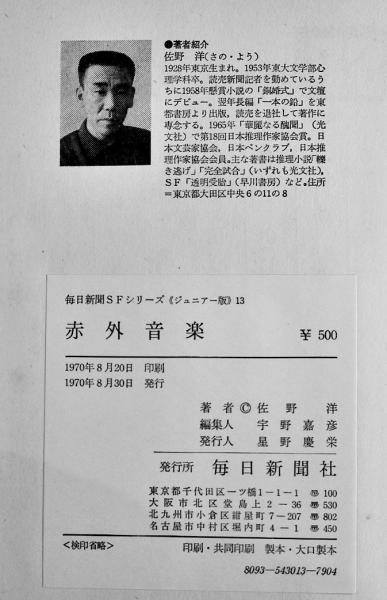 ●著者紹介
佐野 洋(さの・よう)
1928年東京生まれ。1953年東大文学部心
理学科卒。読売新聞記者を勤めているう
ちに1958年懸賞小説の「銅婚式」で文壇
にデビュー。翌年長編「一本の鉛」を東
都書房より出版，読売を退社して著作に
専念する。1965年「華麗なる醜聞」（光
文社）で第18回日本推理作家協会賞。日
本文芸家協会，日本ペンクラブ，日本推
理作家協会会員。主な著書は推理小説「轢
き逃げ」「完全試合」（いずれも光文社），
ＳＦ「透明受胎」（早川書房）など。住所
＝東京都大田区中央６の11の８
毎日新聞ＳＦシリーズ《ジュニアー版》13
赤外音楽 ￥500
1970年８月20日 印刷
1970年８月30日 発行
著者 © 佐野 洋
編集人 宇野嘉彦
発行人 星野慶栄
発行所 毎日新聞社
東京都千代田区一ツ橋１－１－１ 〠100
大阪市北区堂島上２－36 〠530
北九州市小倉区紺屋町７－207 〠802
名古屋市中村区堀内町４－１ 〠450
＜検印省略＞ 印刷・共同印刷 製本・大口製本
8093-543013-7904